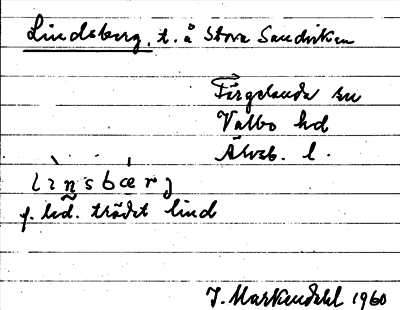 Lindsberg, t. å Stora Sandviken
Färgelanda sn
Valbo hd
Älvsb. l.
lìnsbær
f. led. trädet lind
J. Markendahl 1960